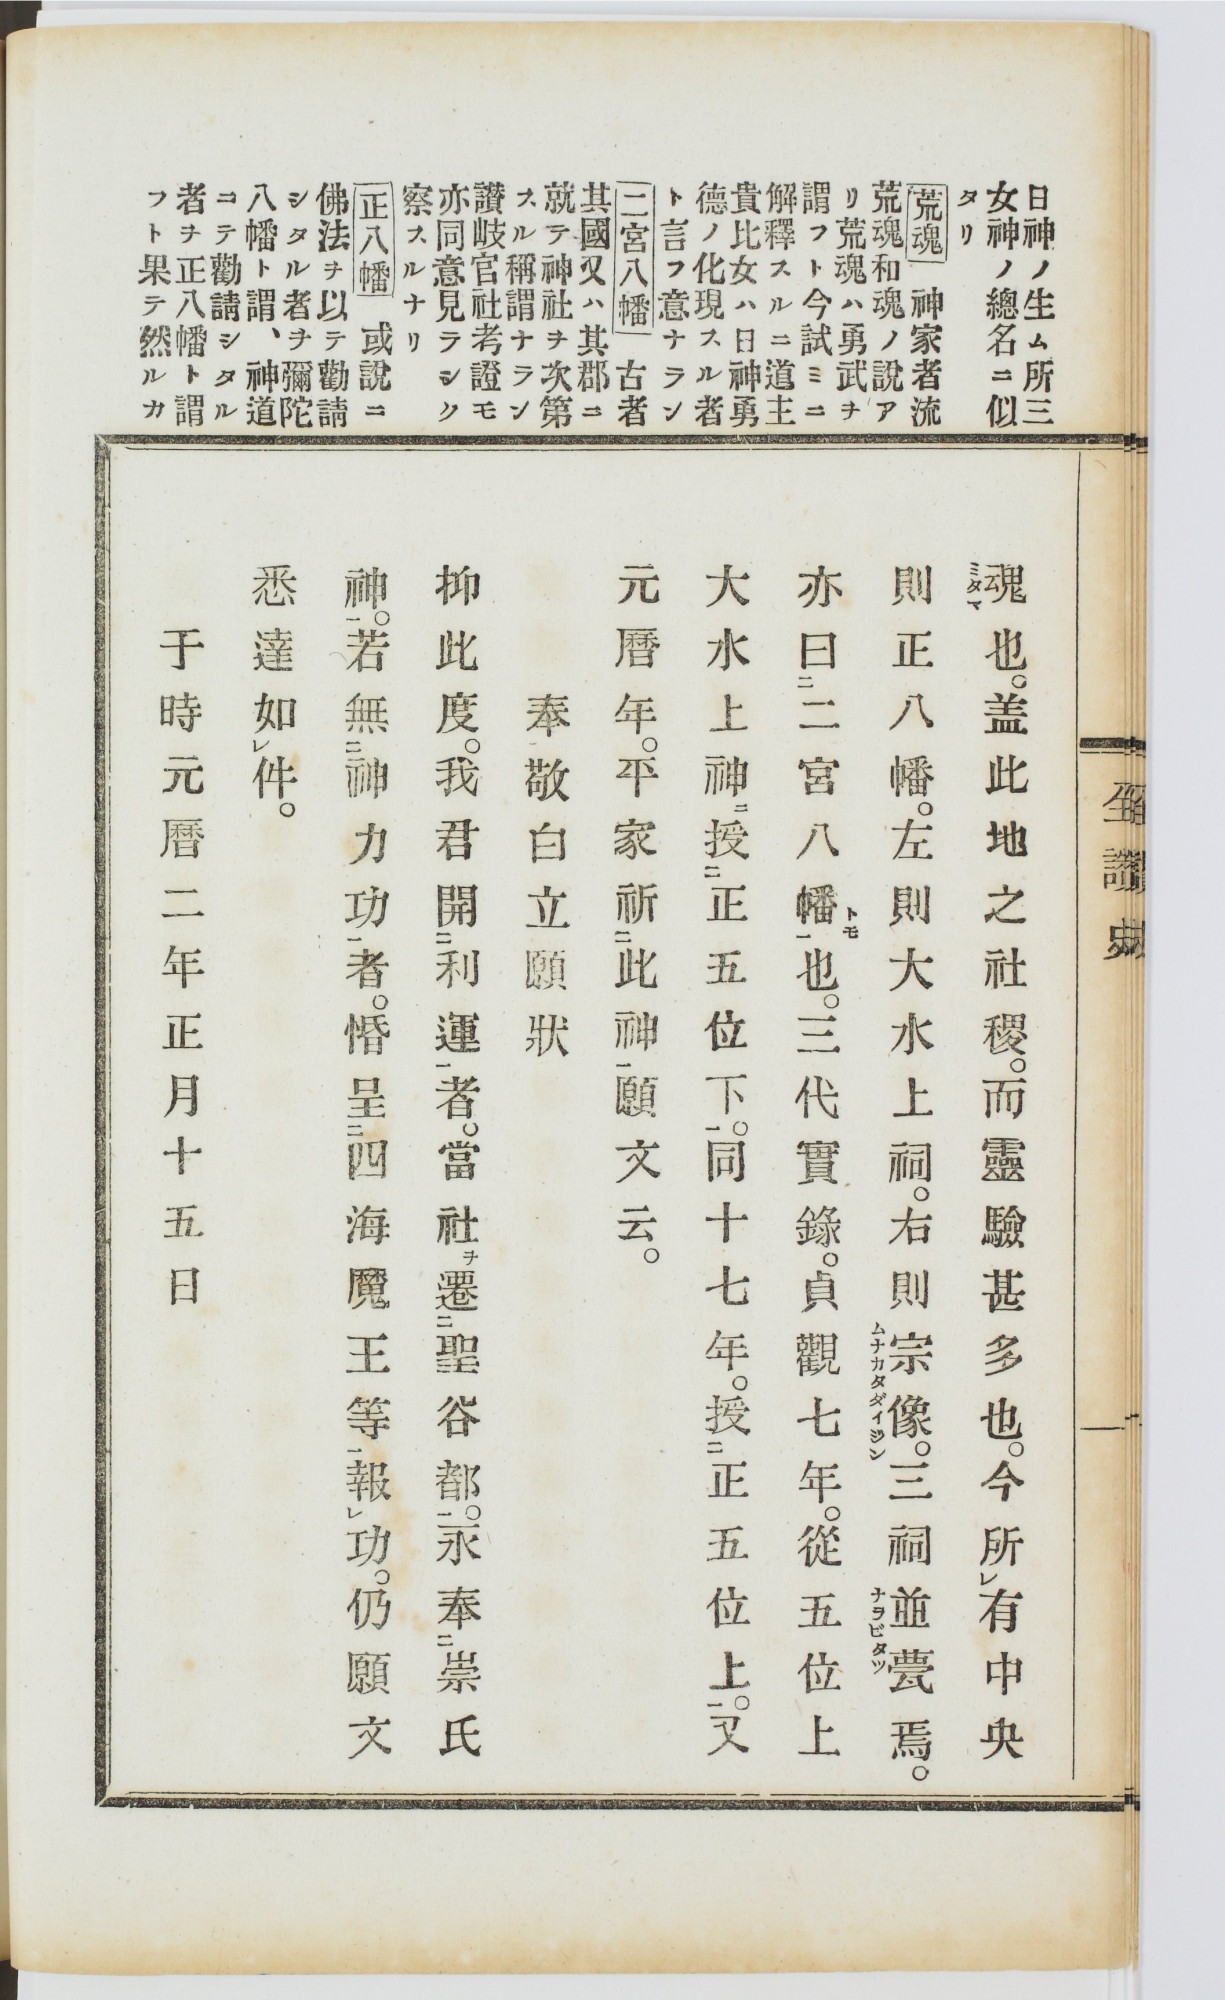 日神ノ生ム所三
女神ノ總名ニ似
タリ
荒魂 神家者流
荒魂和魂ノ說ア
リ荒魂ハ勇武ヲ
謂フト今試ミニ
解釋スルニ道主
貴比女ハ日神勇
德ノ化現スル者
ト言フ意ナラン
二宮八幡 古者
其國又ハ其郡ニ
就テ神社ヲ次第
スル稱謂ナラン
讃岐官社考證モ
亦同意見ラシク
察スルナリ
正八幡 或說ニ
佛法ヲ以テ勸請
シタル者ヲ彌陀
八幡ト謂、神道
ニテ勸請シタル
者ヲ正八幡ト謂
フト果テ然ルカ
魂ミタマ也。盖此地之社稷。而靈驗甚多也。今所レ有中央
則正八幡。左則大水上祠。右則宗像ムナカタダイジン。三祠並甍ナラビタツ焉。
亦曰ニ二宮八幡一トモ也。三代實錄。貞觀七年。從五位上
大水上神ニ授ニ正五位下一。同十七年。授ニ正五位上一。又
元曆年。平家祈ニ此神一願文云。
奉敬白立願狀
抑此度。我君開ニ利運一者。當社ヲ遷ニ聖谷都一。永奉ニ崇氏
神一。若無ニ神力功一者。惛呈ニ四海魔王等一報レ功。仍願文
悉達如レ件。
于時元曆二年正月十五日